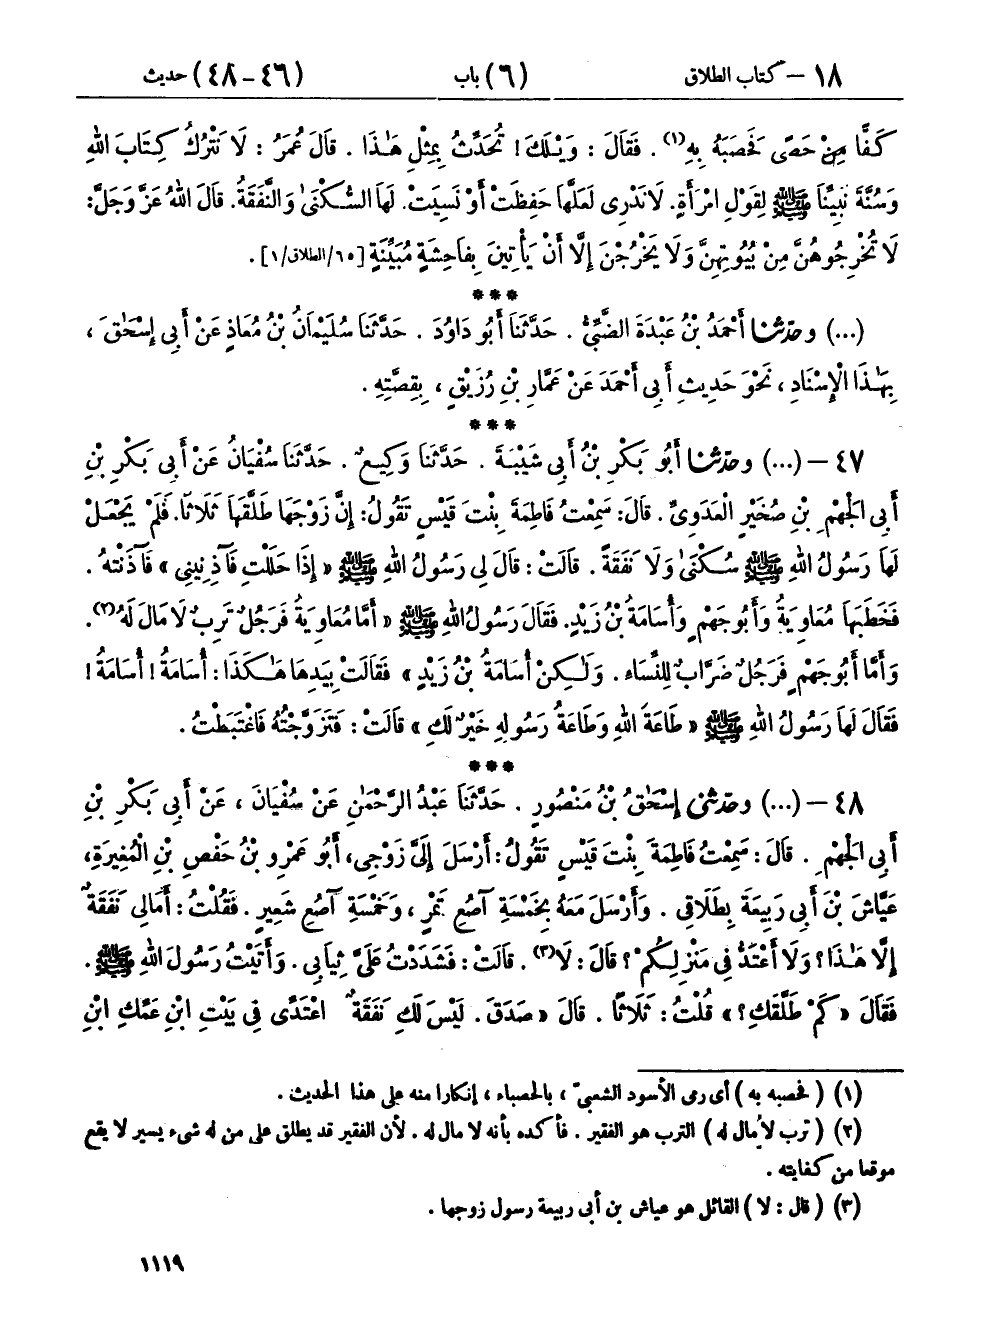 ١٨ – كتاب الطلاق (٦) باب (٤٦-٤٨) حديث
كَفًّا مِنْ حَصًى فَحَصَبَهُ بِهِ(١) . فَقَالَ : وَيْلَكَ ! تُحَدِّثُ بِمِثْلِ هَٰذَا . قَالَ عُمَرُ : لَا نَتْرُكُ كِتَابَ اللهِ
وَسُنَّةَ نَبِيِّنَا ﷺ لِقَوْلِ امْرَأَةٍ. لَا نَدْرِى لَعَلَّهَا حَفِظَتْ أَوْ نَسِيَتْ. لَهَا السُّكْنَىٰ وَالنَّفَقَةُ. قَالَ اللهُ عَزَّ وَجَلَّ:
لَا تُخْرِجُوهُنَّ مِنْ بُيُوتِهِنَّ وَلَا يَخْرُجْنَ إِلَّا أَنْ يَأْتِينَ بِفَاحِشَةٍ مُبَيِّنَةٍ [٦٥/الطلاق/١] .
***
(...) وحَدَّثَنَا أَحْمَدُ بْنُ عَبْدَةَ الضَّبِّيُّ . حَدَّثَنَا أَبُو دَاوُدَ . حَدَّثَنَا سُلَيْمَانُ بْنُ مُعَاذٍ عَنْ أَبِى إِسْحَٰقَ ،
بِهَٰذَا الْإِسْنَادِ ، نَحْوَ حَدِيثِ أَبِى أَحْمَدَ عَنْ عَمَّارِ بْنِ رُزَيْقٍ ، بِقِصَّتِهِ .
***
٤٧ – (...) وحَدَّثَنَا أَبُو بَكْرِ بْنُ أَبِى شَيْبَةَ . حَدَّثَنَا وَكِيعٌ . حَدَّثَنَا سُفْيَانُ عَنْ أَبِى بَكْرِ بْنِ
أَبِى الْجَهْمِ بْنِ صُخَيْرٍ الْعَدَوِىِّ . قَالَ: سَمِعْتُ فَاطِمَةَ بِنْتَ قَيْسٍ تَقُولُ: إِنَّ زَوْجَهَا طَلَّقَهَا ثَلَاثًا. فَلَمْ يَجْعَلْ
لَهَا رَسُولُ اللهِ ﷺ سُكْنَىٰ وَلَا نَفَقَةً . قَالَتْ : قَالَ لِى رَسُولُ اللهِ ﷺ « إِذَا حَلَلْتِ فَآذِنِينِى » فَآذَنْتُهُ .
فَخَطَبَهَا مُعَاوِيَةُ وَأَبُو جَهْمٍ وَأُسَامَةُ بْنُ زَيْدٍ. فَقَالَ رَسُولُ اللهِ ﷺ « أَمَّا مُعَاوِيَةُ فَرَجُلٌ تَرِبٌ لَا مَالَ لَهُ(٢).
وَأَمَّا أَبُو جَهْمٍ فَرَجُلٌ ضَرَّابٌ لِلنِّسَاءِ . وَلَٰكِنْ أُسَامَةُ بْنُ زَيْدٍ » فَقَالَتْ بِيَدِهَا هَٰكَذَا : أُسَامَةُ ! أُسَامَةُ !
فَقَالَ لَهَا رَسُولُ اللهِ ﷺ « طَاعَةُ اللهِ وَطَاعَةُ رَسُولِهِ خَيْرٌ لَكِ » قَالَتْ : فَتَزَوَّجْتُهُ فَاغْتَبَطْتُ .
***
٤٨ – (...) وحَدَّثَنِى إِسْحَٰقُ بْنُ مَنْصُورٍ . حَدَّثَنَا عَبْدُ الرَّحْمَٰنِ عَنْ سُفْيَانَ ، عَنْ أَبِى بَكْرِ بْنِ
أَبِى الْجَهْمِ . قَالَ : سَمِعْتُ فَاطِمَةَ بِنْتَ قَيْسٍ تَقُولُ : أَرْسَلَ إِلَىَّ زَوْجِى، أَبُو عَمْرِو بْنُ حَفْصِ بْنِ الْمُغِيرَةِ،
عَيَّاشَ بْنَ أَبِى رَبِيعَةَ بِطَلَاقِى . وَأَرْسَلَ مَعَهُ بِخَمْسَةِ آصُعِ تَمْرٍ ، وَخَمْسَةِ آصُعِ شَعِيرٍ . فَقُلْتُ : أَمَا لِى نَفَقَةٌ
إِلَّا هَٰذَا ؟ وَلَا أَعْتَدُّ فِى مَنْزِلِكُمْ ؟ قَالَ : لَا(٣) . قَالَتْ : فَشَدَدْتُ عَلَىَّ ثِيَابِى . وَأَتَيْتُ رَسُولَ اللهِ ﷺ .
فَقَالَ « كَمْ طَلَّقَكِ ؟ » قُلْتُ : ثَلَاثًا . قَالَ « صَدَقَ . لَيْسَ لَكِ نَفَقَةٌ اعْتَدِّى فِى بَيْتِ ابْنِ عَمِّكِ ابْنِ
(١) ( فحصبه به ) أى رمى الأسود الشعبىّ ، بالحصباء ، إنكارا منه على هذا الحديث .
(٢) ( ترب لا مال له ) الترب هو الفقير . فأكده بأنه لا مال له . لأن الفقير قد يطلق على من له شىء يسير لا يقع
موقعا من كفايته .
(٣) ( قال : لا ) القائل هو عياش بن أبى ربيعة رسول زوجها .
١١١٩